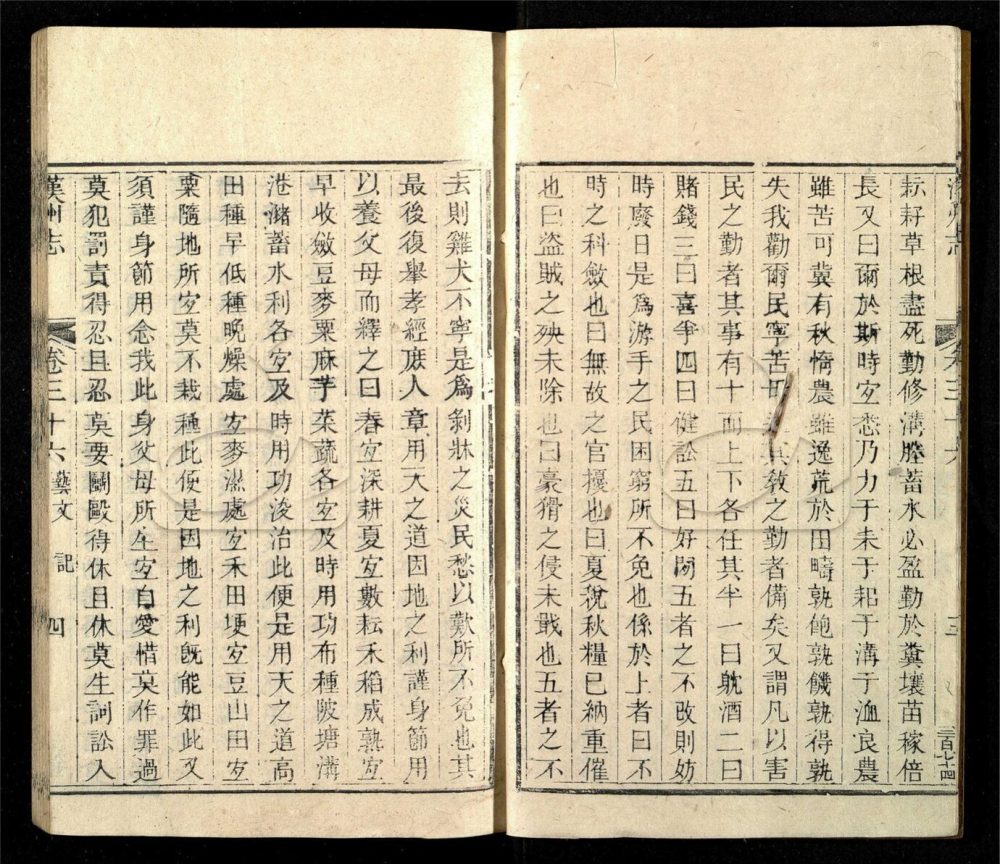 耘耔草根盡死勤修溝塍蓄水必盈勤於糞壤苗稼倍
長又曰爾於斯時宜悉乃力于耒于耜于溝于洫良農
雖苦可冀有秋惰農雖逸荒於田疇孰飽孰饑孰得孰
失我勸爾民寧苦毋其敎之勤者備矣又謂凡以害
民之勤者其事有十而上下各任其半一曰躭酒二曰
賭錢三曰喜爭四曰健訟五曰好閑五者之不改則妨
時廢日是爲游手之民困窮所不免也係於上者曰不
時之科斂也曰無故之官擾也曰夏稅秋糧已納重催
也曰盜賊之殃未除也曰豪猾之侵未戢也五者之不
三
三百七十四
去則雞犬不寧是爲剝牀之災民愁以歎所不免也其
最後復舉孝經庶人章用天之道因地之利謹身節用
以養父母而釋之曰春宜深耕夏宜數耘禾稻成孰宜
早收斂豆麥粟麻芋菜蔬各宜及時用功布種陂塘溝
港瀦蓄水利各宜及時用功浚治此便是用天之道高
田種早低種晚燥處宜麥濕處宜禾田埂宜豆山田宜
粟隨地所宜莫不栽種此便是因地之利旣能如此又
須謹身節用念我此身父母所生宜自愛惜莫作罪過
莫犯罰責得忍且忍莫要鬭毆得休且休莫生詞訟入
漢州志
卷三十六
藝文
記
四